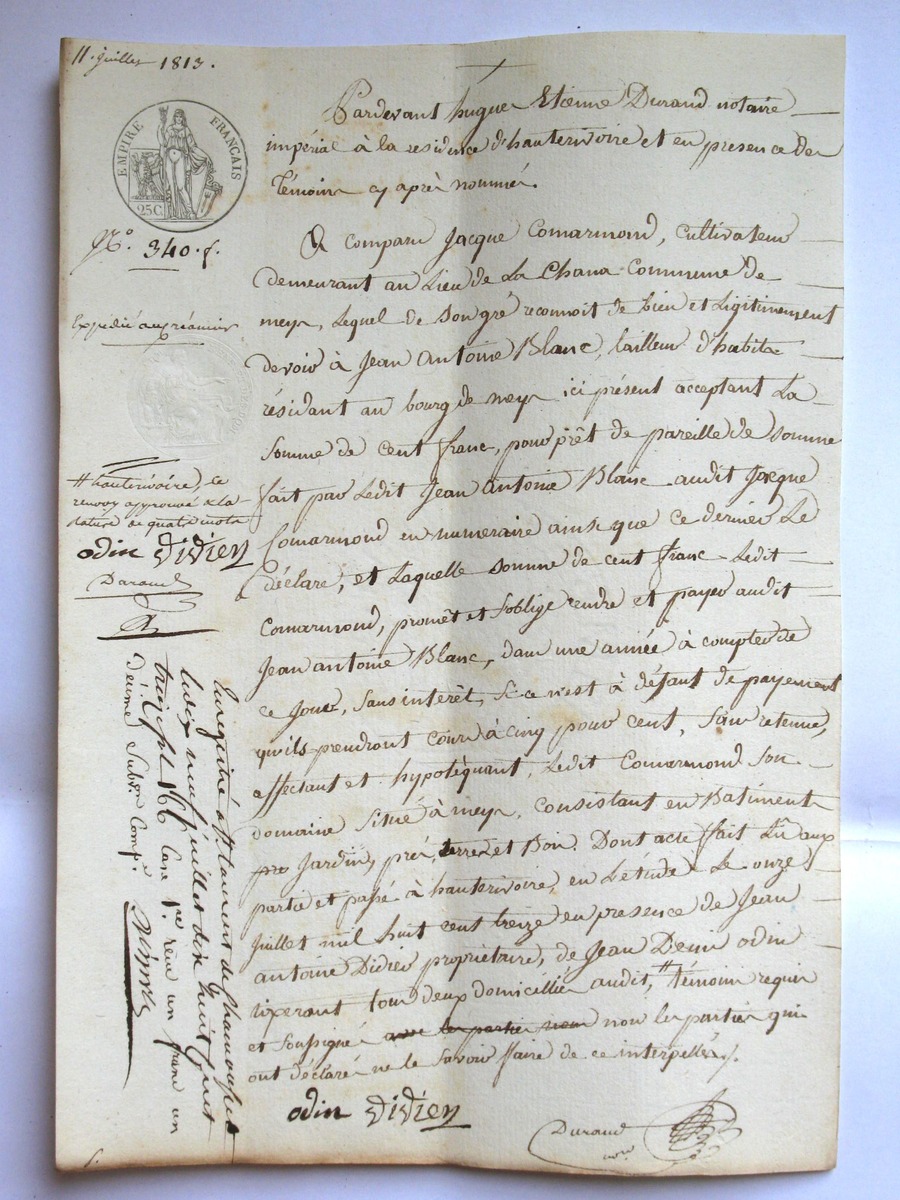 11. juillet 1813.
EMPIRE FRANÇAIS
25C
N.º 340. f.
Pardevant hugue Etienne Durand notaire
impérial à la residence d'hauterivoire et en presence des
témoins cy après nommés.
A comparu Jacque Comarmond, cultivateur
demeurant au Lieu de La Chana Commune de
meys, Lequel de son gré reconnoit de bien et Légitimement
devoir à Jean Antoine Blanc, tailleur d'habits
résidant au bourg de meys ici présent acceptant La
somme de cent franc, pour prêt de pareille de somme
fait par Ledit Jean Antoine Blanc audit Jacque
Comarmond en numeraire ainsi que ce dernier Le
déclare, et Laquelle somme de cent franc Ledit
Comarmond, promêt et s'oblige rendre et payer audit
Jean antoine Blanc, dans une année à compter de
ce jour, sans interêt, si ce n'est à défaut de payement
qu'ils prendront cours à cinq pour cent, sans retenue,
affectant et hypotéquant, Ledit Comarmond son
domaine situé à meys, consistant en Batiment
Jardin, prés, terres et Bois. Dont acte fait Lû aux
partie et passé à hauterivoire, en L'étude Le onze
juillet mil huit cent treize en presence de Jean
antoine Didier propriétaire, de Jean Denis odin
tixerant tous deux domicilliés audit, # témoins requis
et soussignés avec les parties non non les parties qui
ont déclaré ne le savoir faire de ce interpellés ./.
odin Didier
Durand
nore
Expédié au créancier
# hauterivoire, ce
renvoy approuvé a la
nature de quatre mots
odin Didier
Durand
Enregistré à St Laurent de chamousset
le dix neuf juillet dix huit cent
treize fol 166 Case 1re recu un franc un
decime Subvon Compé.